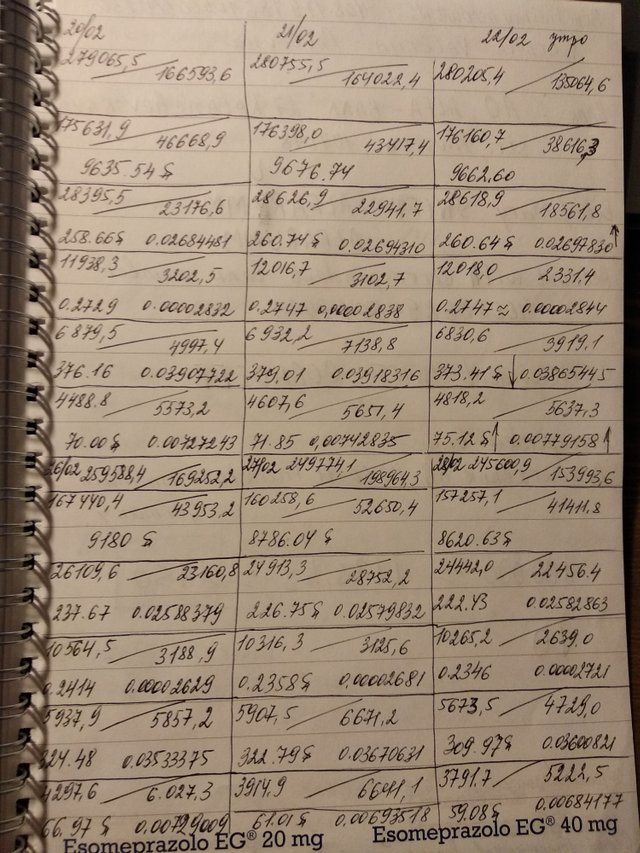 20/02 21/02 22/02 утро
279065,5 / 166593,6 280755,5 / 164022,4 280205,4 / 135064,6
175631,9 / 46668,9 176398,0 / 43417,4 176160,7 / 38616,3
9635.54 $ 9676.74 9662.60
28395,5 / 23176,6 28626,9 / 22941,7 28618,9 / 18561,8
258.66$ 0.02684481 260.74$ 0.02694310 260.64$ 0.02697830↑
11938,3 / 3202,5 12016,7 / 3102,7 12018,0 / 2331.4
0.2729 0.00002832 0.2747 0,00002838 0.2747≈ 0.00002844
6879,5 / 4997,4 6932,2 / 7138,8 6830,6 / 3919,1
376.16 0.03907722 379,01 0.03918316 373.41$↓ 0.03865445
4488.8 / 5573,2 4607,6 / 5651,4 4818,2 / 5637,3
70.00$ 0.00727243 71.85 0,00742835 75.12$↑ 0.00779158↑
26/02 259588,4 / 169252,2 27/02 249774,1 / 198964.3 28/02 245600,9 / 153993,6
167440,4 / 43953,2 160258,6 / 52650,4 157257,1 / 41411,8
9180 $ 8786.04 $ 8620.63$
26109,6 / 23160,8 24913,3 / 28752,2 24442,0 / 22456.4
237.67 0.02588379 226.75$ 0.02579832 222.43 0.02582863
10564,5 / 3188,9 10316,3 / 3125,6 10265,2 / 2639,0
0.2414 0.00002629 0.2358$ 0,00002681 0.2346 0.00002721
5937,9 / 5857,2 5907,5 / 6671,2 5673,5 / 4729,0
324.48 0,03533375 322.79$ 0.03670631 309.97$ 0.03600821
4297,6 / 6.027,3 3914,9 / 6641,1 3791.7 / 5222,5
66.97 $ 0,00729009 61.01$ 0.00693518 59.08$ 0.00684177
Esomeprazolo EG® 20 mg Esomeprazolo EG® 40 mg